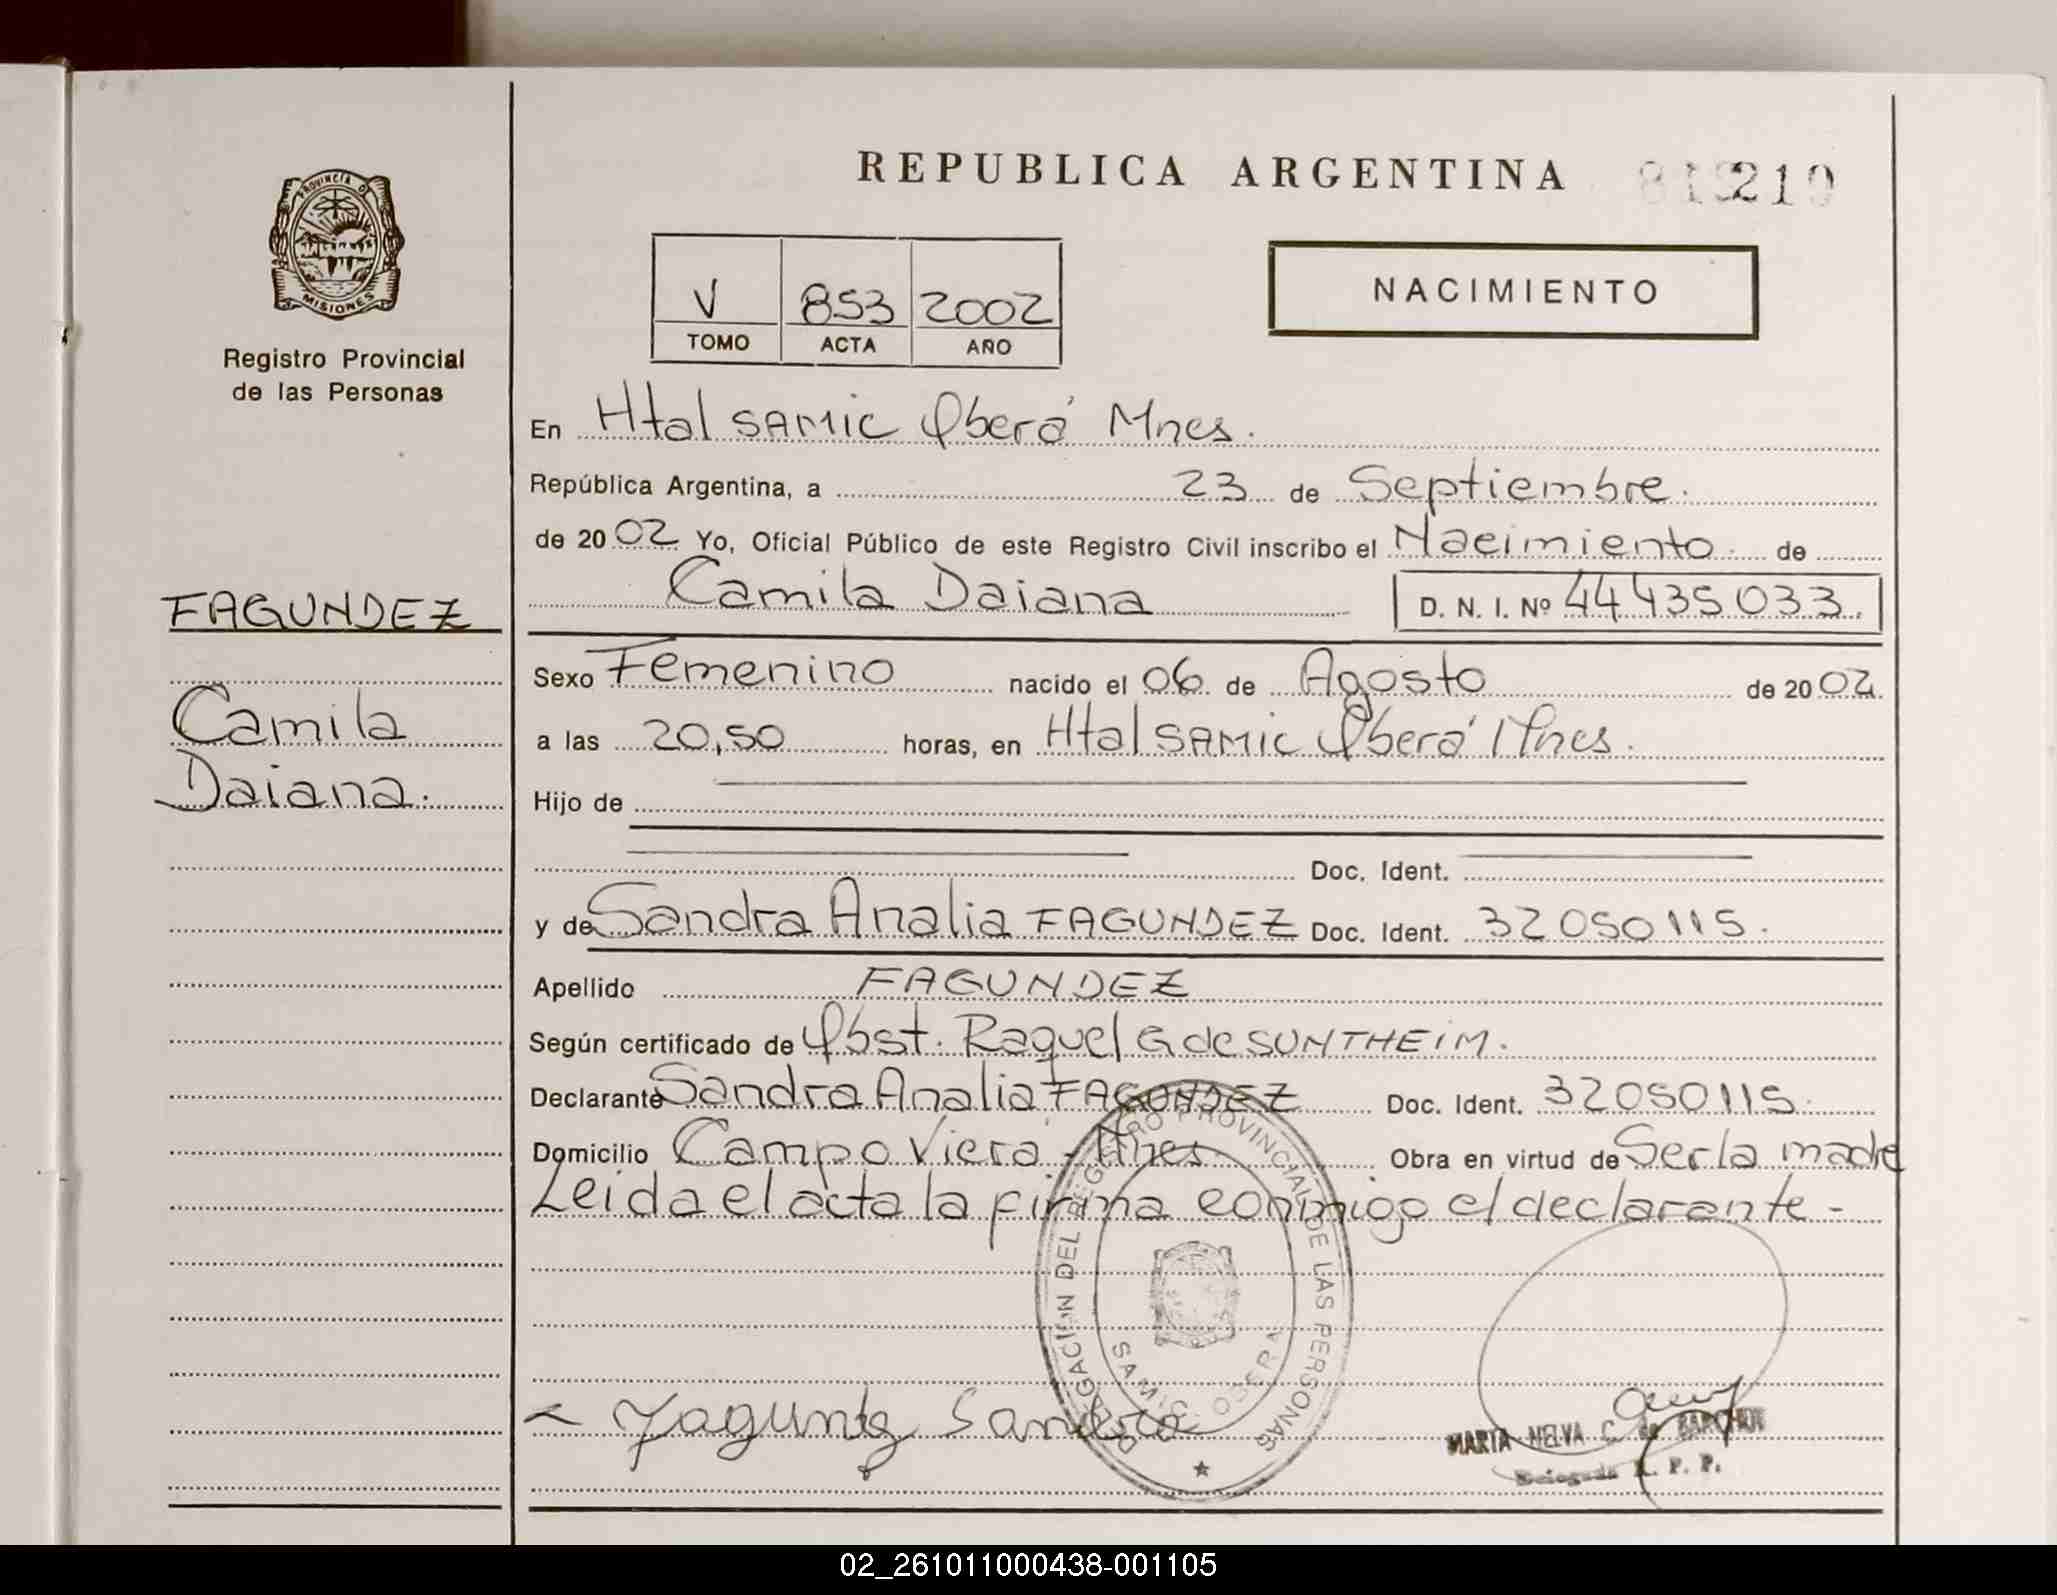 REPUBLICA ARGENTINA
210
PROVINCIA DE
MISIONES
Registro Provincial
de las Personas
NACIMIENTO
V 853 2002
TOMO ACTA AÑO
En Htal SAMIC Oberá Mnes.
República Argentina, a 23 de Septiembre.
de 2002 Yo, Oficial Público de este Registro Civil inscribo el Nacimiento de
Camila Daiana D. N. I. Nº 44435033.
FAGUNDEZ
Camila
Daiana.
Sexo Femenino nacido el 06 de Agosto de 2002
a las 20,50 horas, en Htal SAMIC Oberá Mnes.
Hijo de
Doc. Ident.
y de Sandra Analia FAGUNDEZ Doc. Ident. 32050115.
Apellido FAGUNDEZ
Según certificado de Obst. Raquel G de SUNTHEIM.
Declarante Sandra Analia FAGUNDEZ Doc. Ident. 32050115.
Domicilio Campo Viera - Mnes Obra en virtud de Ser la madre
Leida el acta la firma conmigo el declarante -
DELEGACION DEL REGISTRO PROVINCIAL DE LAS PERSONAS
SAMIC OBERA
Sandra
MARTA NELVA C. de
Delegada R. P. P.
02_261011000438-001105